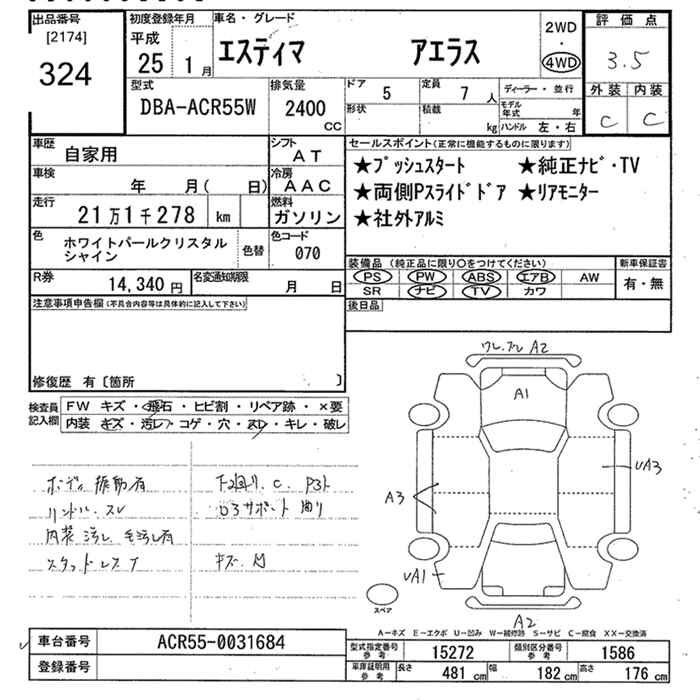 出品番号 初度登録年月 車名・グレード 2WD・4WD 評価点
[2174] 平成
324 25年 1月 エスティマ アエラス 3.5
外装 内装
C C
型式 排気量 ドア 5 定員 7人 ディーラー・並行
DBA-ACR55W 2400CC 形状 積載 kg モデル年式 年
ハンドル 左・右
車歴 自家用 シフト AT セールスポイント(正常に機能するものに限ります)
車検 年 月( 日) 冷房 AAC ★プッシュスタート ★純正ナビ・TV
走行 21万1千278 km 燃料 ガソリン ★両側Pスライドドア ★リアモニター
★社外アルミ
色 ホワイトパールクリスタルシャイン 色替 色コード 070
装備品(純正品に限り○をつけてください) 新車保証書
PS PW ABS エアB AW 有・無
SR ナビ TV カワ
R券 14,340円 名変通知期限 月 日
後日品
注意事項申告欄(不具合内容等は具体的に記入して下さい)
修復歴 有〔箇所 〕
検査員記入欄 FW キズ・飛石・ヒビ割・リペア跡・×要
内装 キズ・汚レ・コゲ・穴・スレ・キレ・破レ
ハンドル スレ
A2
A1
A3
UA3
UA1
A2
スペア
A-キズ E-エクボ U-凹み W-補修跡 S-サビ C-腐食 XX-交換済
車台番号 ACR55-0031684
登録番号
型式指定番号 参考 15272 類別区分番号 参考 1586
車庫証明用 参考 長さ 481cm 幅 182cm 高さ 176cm